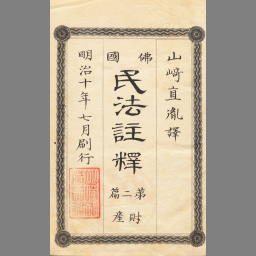 山﨑直胤譯
佛國
民法註釋
第二篇
財産
明治十年七月刷行